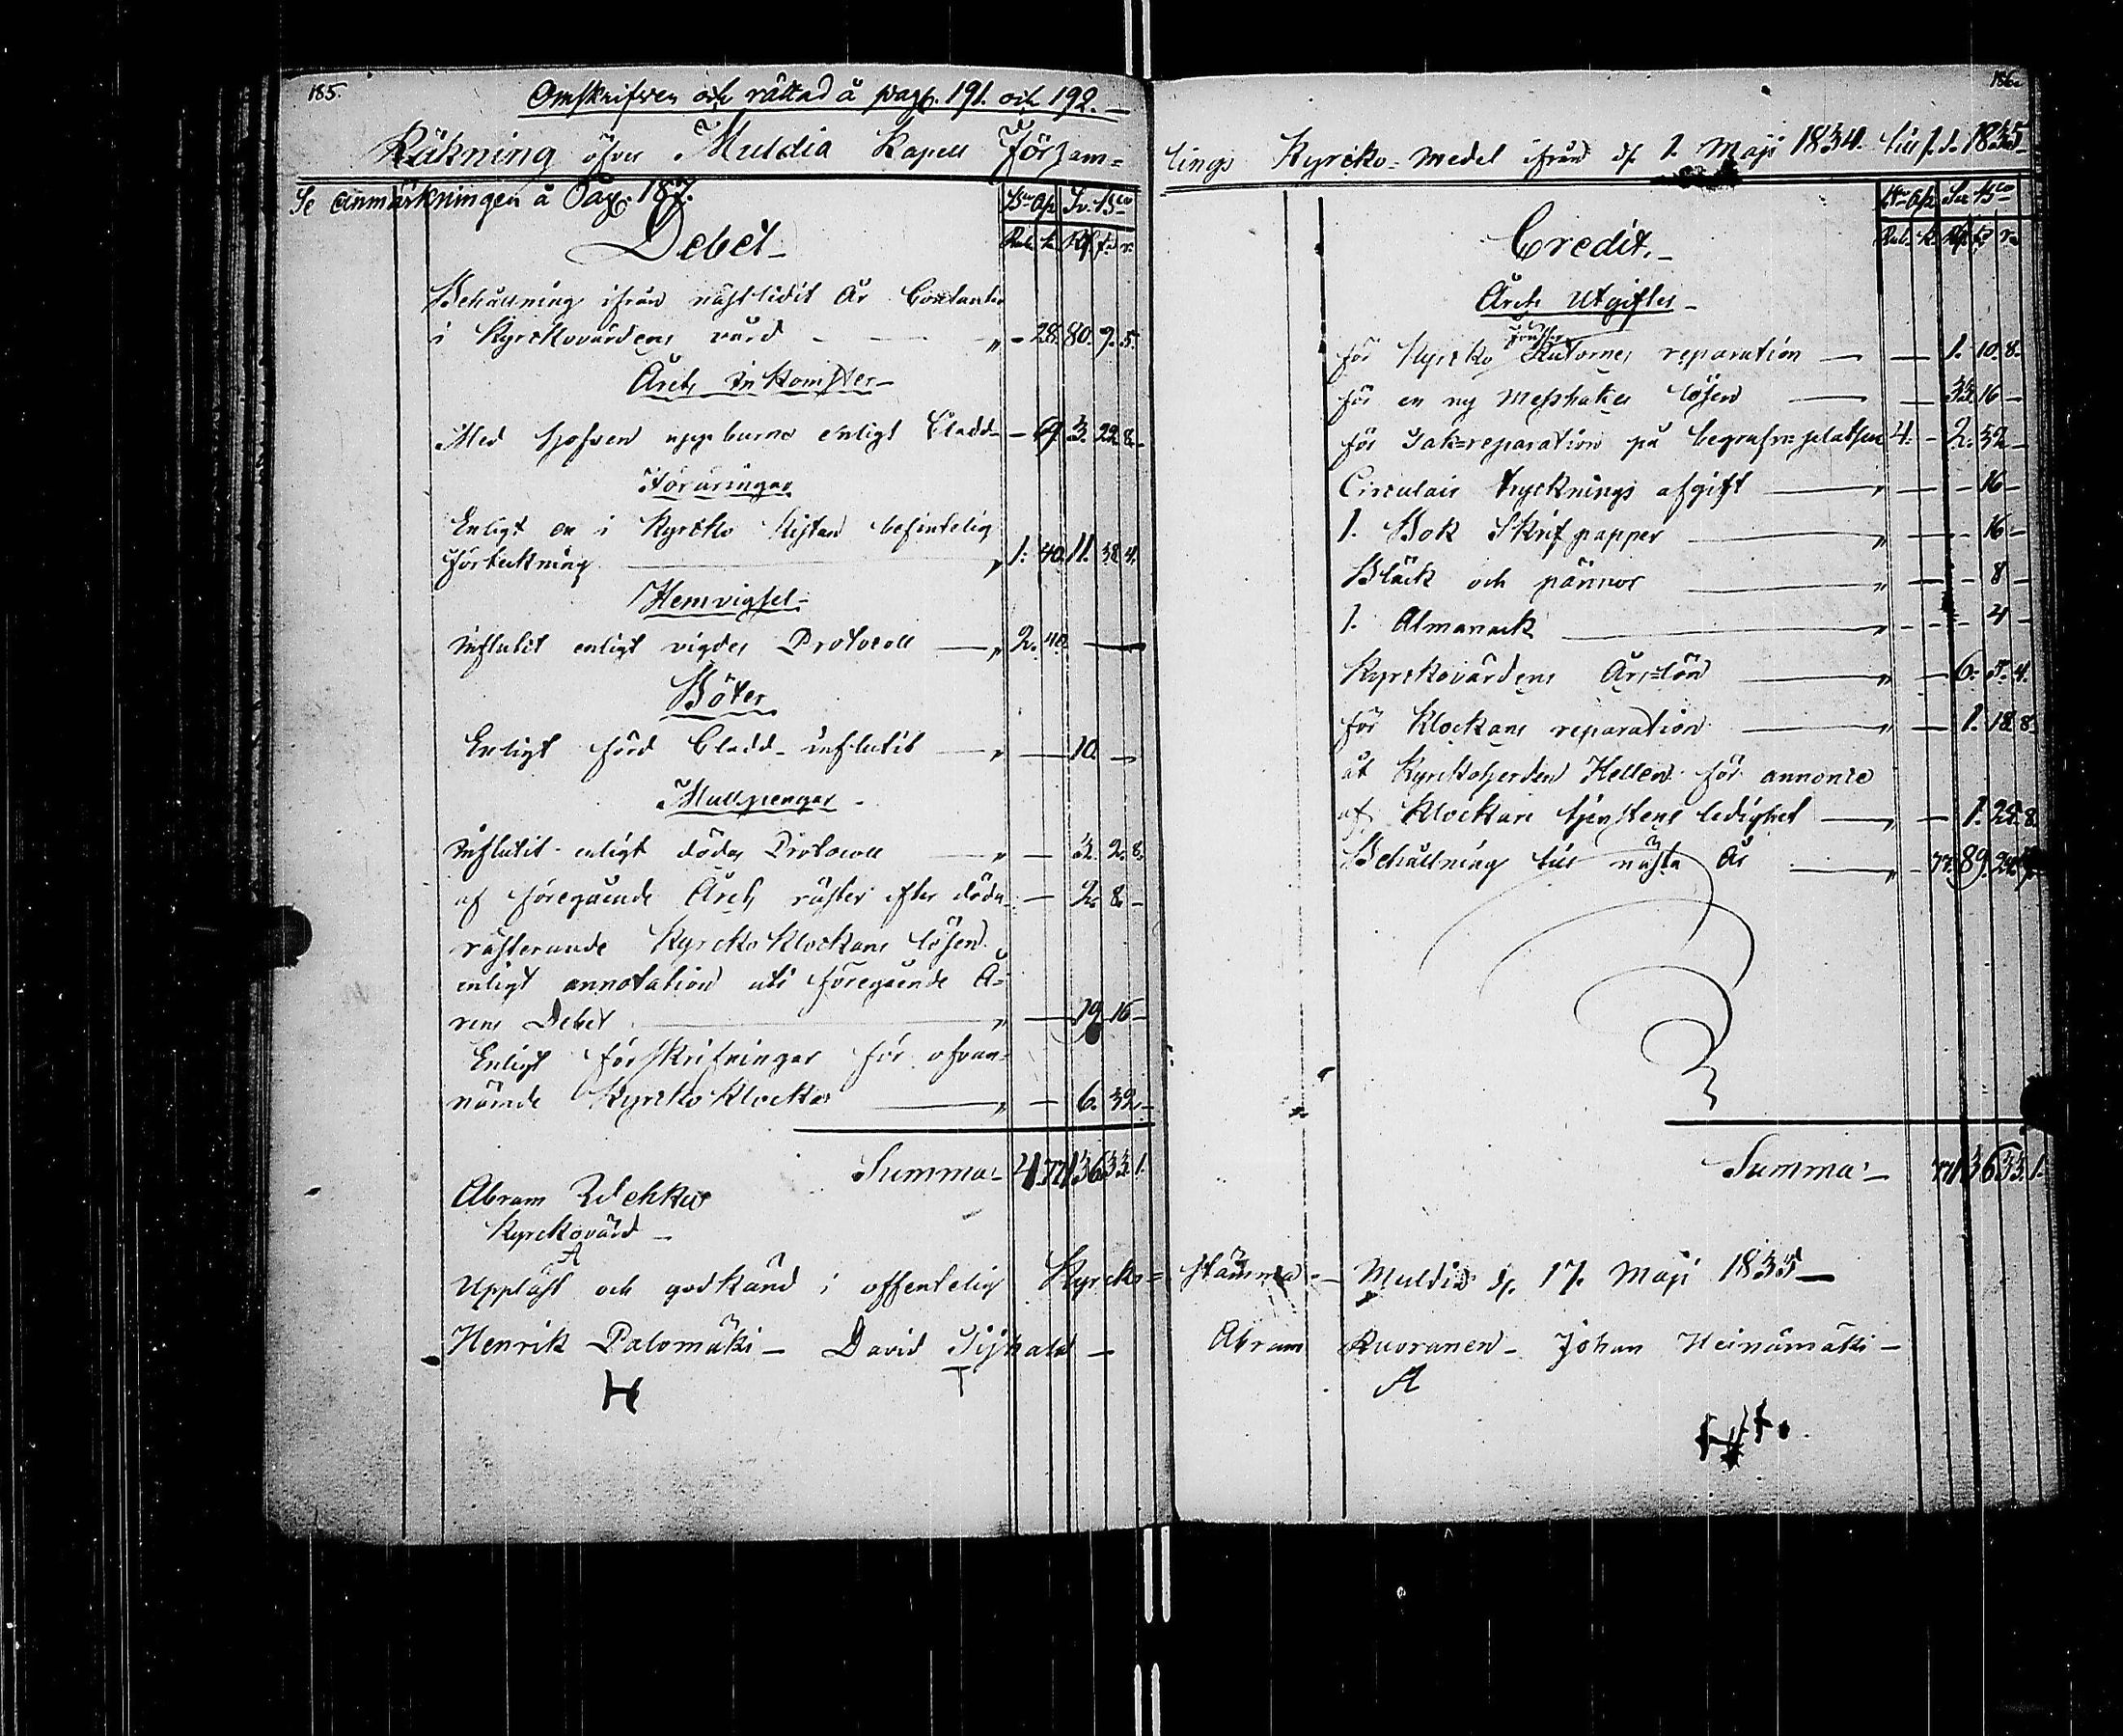 185.
Omskrifven och rättad å pagg. 191. och 192.
Räkning öfver Muldia Kapell Församlings Kyrcko-Medel ifrån d. 1. Maji 1834. till d. 1835
Se anmärkningen å Pag. 187.
Bco Ass. Sv. Bco
Rub. k. Rd. s. r.
Debet
Behållning ifrån nästlidit År Contanter
i Kyrckovärdens vård - 28. 80. 7. 5.
Årets Inkomster
Med Hofven uppburne enligt Cladd - 69 3. 22 8.
Föräringar
Enligt en i Kyrcko Kistan befintelig
förteckning 1. 40. 11. 32 4.
Hemvigsel
Influtit enligt vigdes Protocoll 2. 40.
Böter
Enligt förd Cladd influtit 10.
Mullpengar
Influtit enligt dödes Protocoll 3. 2. 8.
af föregående Årets räster efter döda 2. 8.
rästerande Kyrcko Klockans lösen
enligt annotation uti föregående Årens
Debet 19 16
Enligt förskrifningar för ofvannämde
Kyrcko Klocka 6. 32
Summa 4. 77 136 33. 1.
Abram
Kyrckovärd
Uppläst och godkänd i offentelig Kyrcko=Stämma Muldia d. 17. Maji 1835
Henrik Palomäki David Abram Kuoranen Johan Heinämäki
H T A
186.
Rub. k. Rd. s. r.
Credit.
Årets Utgifter
fönster
för Kyrcko Rutornes reparation 1. 10. 8.
för en ny Messhakes lösen 33 16
för Tak=reparation på begrafn=platsen 4. 2. 32
Circulair trycknings afgift 16
1. Bok Skrifpapper 16
Bläck och pännor 8
1. Almanack 4
Kyrckovärdens Års=lön 6. 5. 4.
för Klockans reparation 1. 18 8
åt Kyrckoherden Hellen för annonce
af Klockare tjenstens ledighet 1. 22. 8.
Behållning till nästa År 77. 89. 24
Summa 77 136 33. 1.